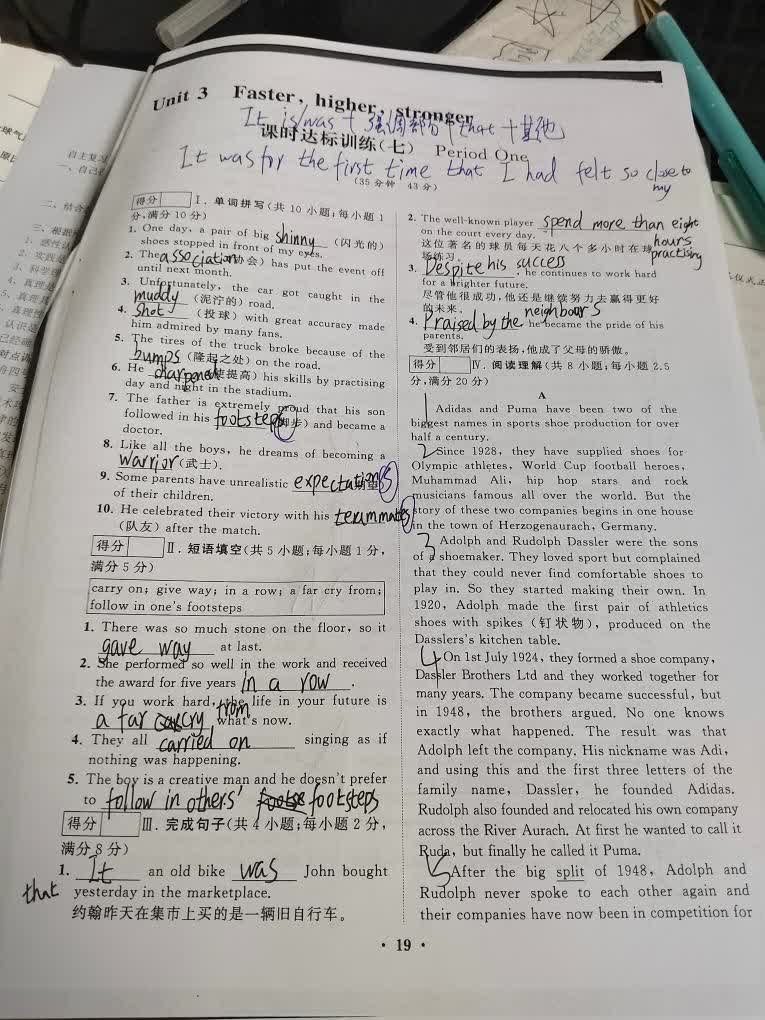 Unit 3 Faster, higher, stronger
It is/was + 强调部分 + that + 其他
课时达标训练(七) Period One
It was for the first time that I had felt so close to
my
(35 分钟 43 分)
得分 Ⅰ. 单词拼写(共 10 小题;每小题 1
分,满分 10 分)
1. One day, a pair of big shinny (闪光的)
shoes stopped in front of my eyes.
2. The association 协会) has put the event off
until next month.
3. Unfortunately, the car got caught in the
muddy (泥泞的) road.
4. shot (投球) with great accuracy made
him admired by many fans.
5. The tires of the truck broke because of the
bumps (隆起之处) on the road.
6. He sharpened 使提高) his skills by practising
day and night in the stadium.
7. The father is extremely proud that his son
followed in his footsteps 脚步) and became a
doctor.
8. Like all the boys, he dreams of becoming a
warrior (武士).
9. Some parents have unrealistic expectations
of their children.
10. He celebrated their victory with his teammates
(队友) after the match.
得分 Ⅱ. 短语填空(共 5 小题;每小题 1 分,
满分 5 分)
carry on; give way; in a row; a far cry from;
follow in one's footsteps
1. There was so much stone on the floor, so it
gave way at last.
2. She performed so well in the work and received
the award for five years in a row .
3. If you work hard, the life in your future is
a far cry from what's now.
4. They all carried on singing as if
nothing was happening.
5. The boy is a creative man and he doesn't prefer
to follow in others' footsteps
得分 Ⅲ. 完成句子(共 4 小题;每小题 2 分,
满分 8 分)
1. It an old bike was John bought
that yesterday in the marketplace.
约翰昨天在集市上买的是一辆旧自行车。
2. The well-known player spend more than eight
hours practising
on the court every day.
这位著名的球员每天花八个多小时在球
场练习。
3. Despite his success , he continues to work hard
for a brighter future.
尽管他很成功,他还是继续努力去赢得更好
的未来。
4. Praised by the neighbours he became the pride of his
parents.
受到邻居们的表扬,他成了父母的骄傲。
得分 Ⅳ. 阅读理解(共 8 小题;每小题 2.5
分,满分 20 分)
A
1 Adidas and Puma have been two of the
biggest names in sports shoe production for over
half a century.
2 Since 1928, they have supplied shoes for
Olympic athletes, World Cup football heroes,
Muhammad Ali, hip hop stars and rock
musicians famous all over the world. But the
story of these two companies begins in one house
in the town of Herzogenaurach, Germany.
3 Adolph and Rudolph Dassler were the sons
of a shoemaker. They loved sport but complained
that they could never find comfortable shoes to
play in. So they started making their own. In
1920, Adolph made the first pair of athletics
shoes with spikes (钉状物), produced on the
Dasslers's kitchen table.
4 On 1st July 1924, they formed a shoe company,
Dassler Brothers Ltd and they worked together for
many years. The company became successful, but
in 1948, the brothers argued. No one knows
exactly what happened. The result was that
Adolph left the company. His nickname was Adi,
and using this and the first three letters of the
family name, Dassler, he founded Adidas.
Rudolph also founded and relocated his own company
across the River Aurach. At first he wanted to call it
Ruda, but finally he called it Puma.
5 After the big split of 1948, Adolph and
Rudolph never spoke to each other again and
their companies have now been in competition for
· 19 ·